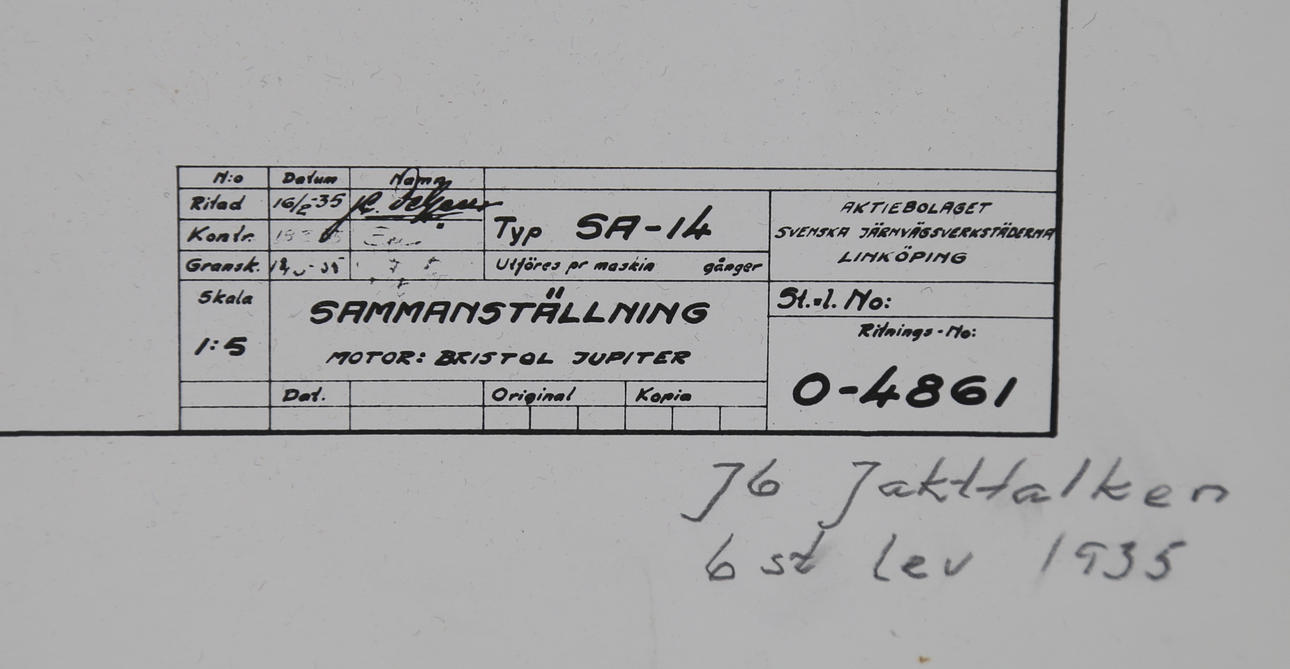 N:o Datum Namn
Ritad 16/2-35
Kontr.
Gransk.
Typ SA-14
Utföres pr maskin gånger
AKTIEBOLAGET
SVENSKA JÄRNVÄGSVERKSTÄDERNA
LINKÖPING
Skala
1:5
SAMMANSTÄLLNING
MOTOR: BRISTOL JUPITER
St.l. No:
Ritnings-No:
O-4861
Dat. Original Kopia
J6 Jaktfalken
6 st lev 1935